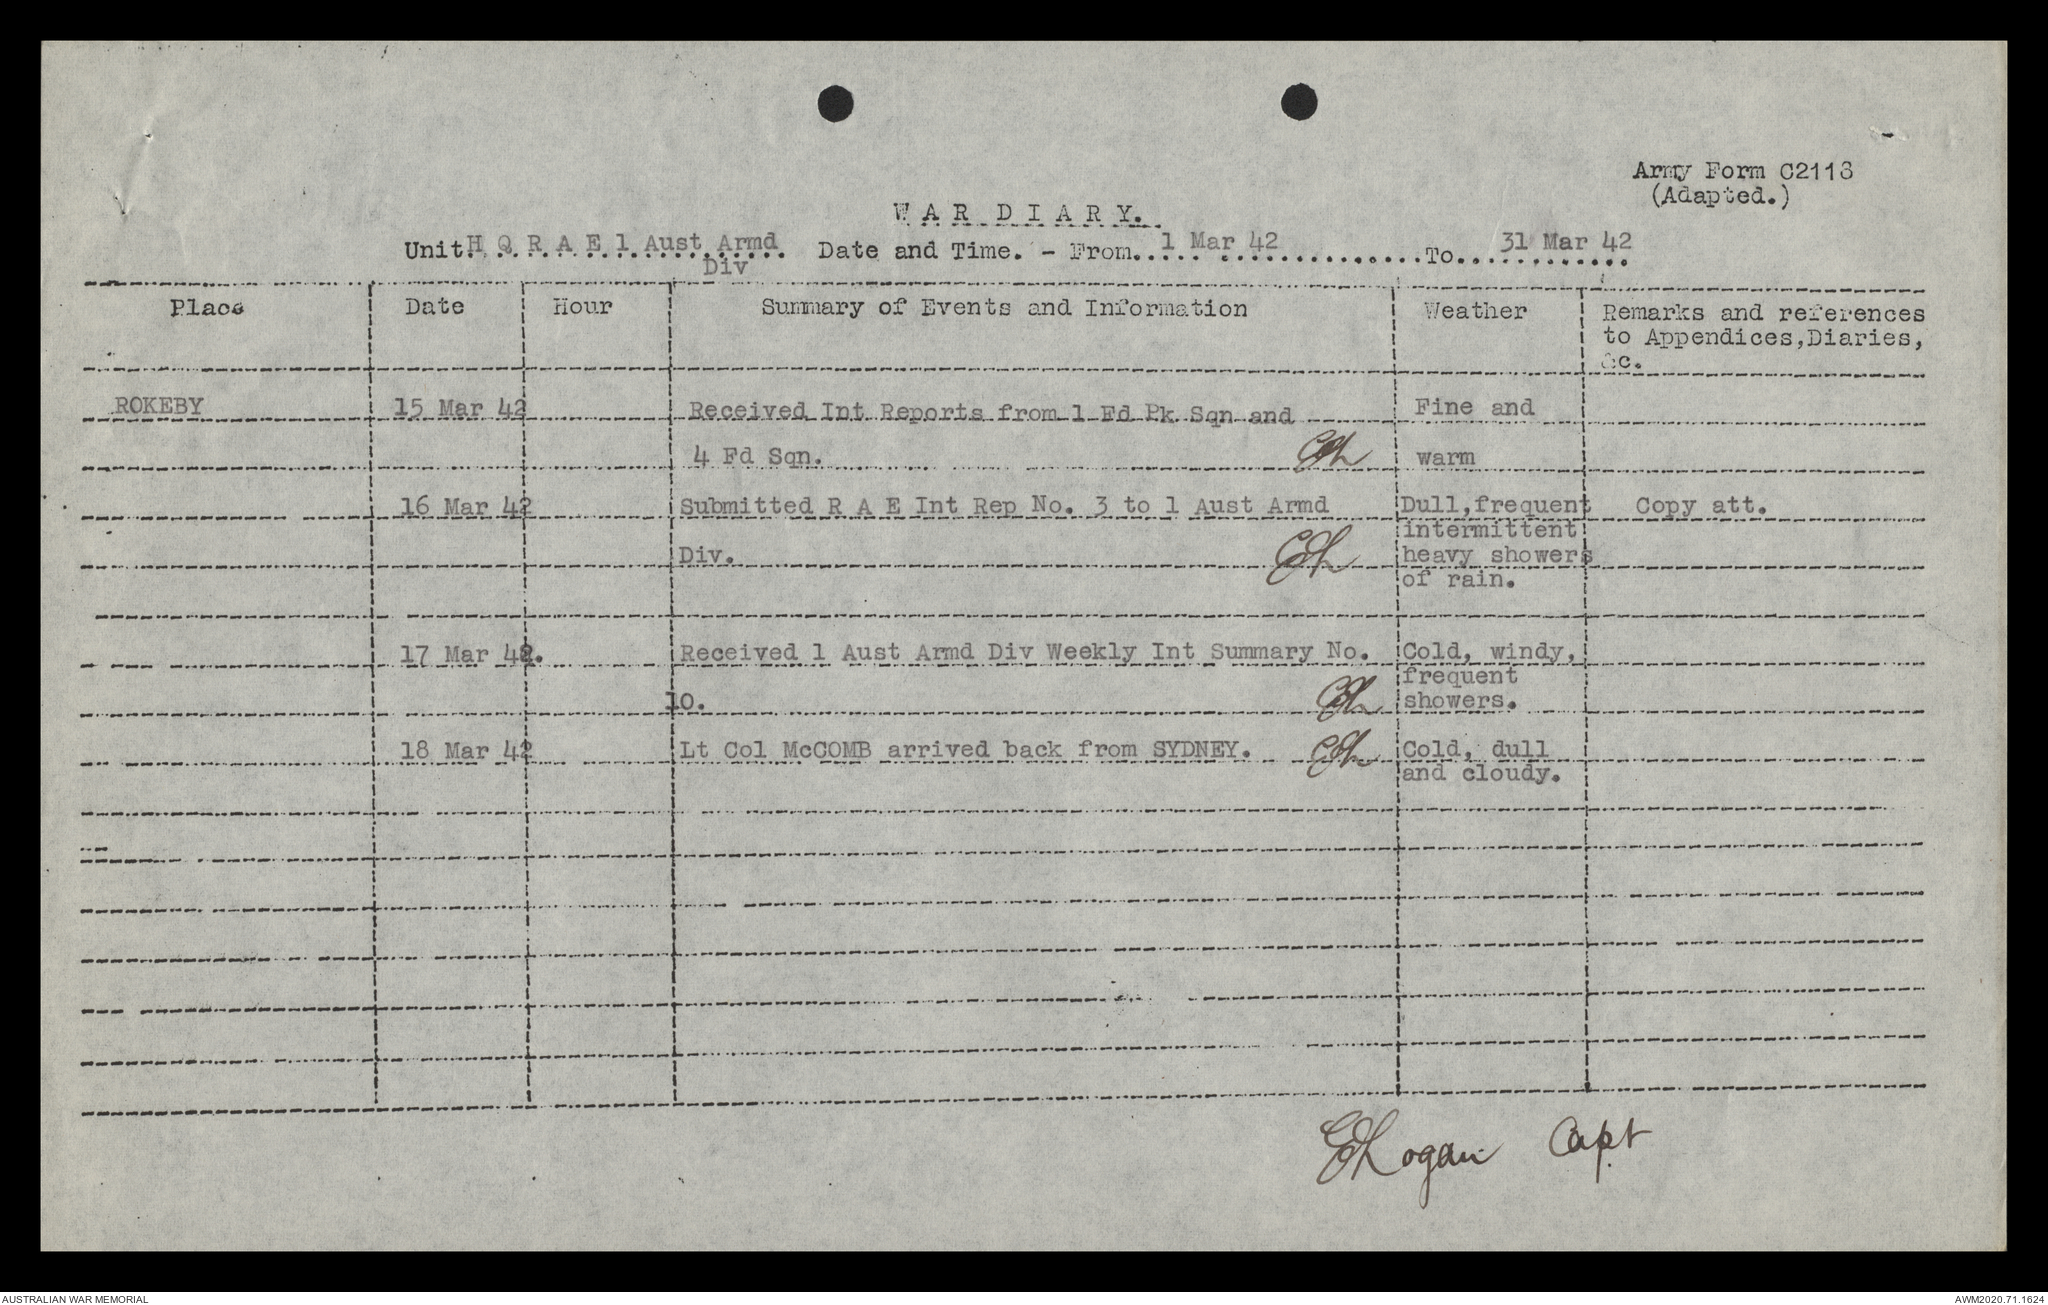 Army Form C2118
(Adapted.)
W A R D I A R Y.
Unit H Q R A E 1 Aust Armd Div Date and Time. - From 1 Mar 42 To 31 Mar 42
Place Date Hour Summary of Events and Information Weather Remarks and references
to Appendices, Diaries,
&c.
ROKEBY 15 Mar 42 Received Int Reports from 1 Fd Pk Sqn and Fine and
4 Fd Sqn. warm
16 Mar 42 Submitted R A E Int Rep No. 3 to 1 Aust Armd Dull, frequent Copy att.
intermittent
Div. heavy showers
of rain.
17 Mar 42. Received 1 Aust Armd Div Weekly Int Summary No. Cold, windy,
frequent
10. showers.
18 Mar 42 Lt Col McCOMB arrived back from SYDNEY. Cold, dull
and cloudy.
Logan Capt
AUSTRALIAN WAR MEMORIAL AWM2020.71.1624